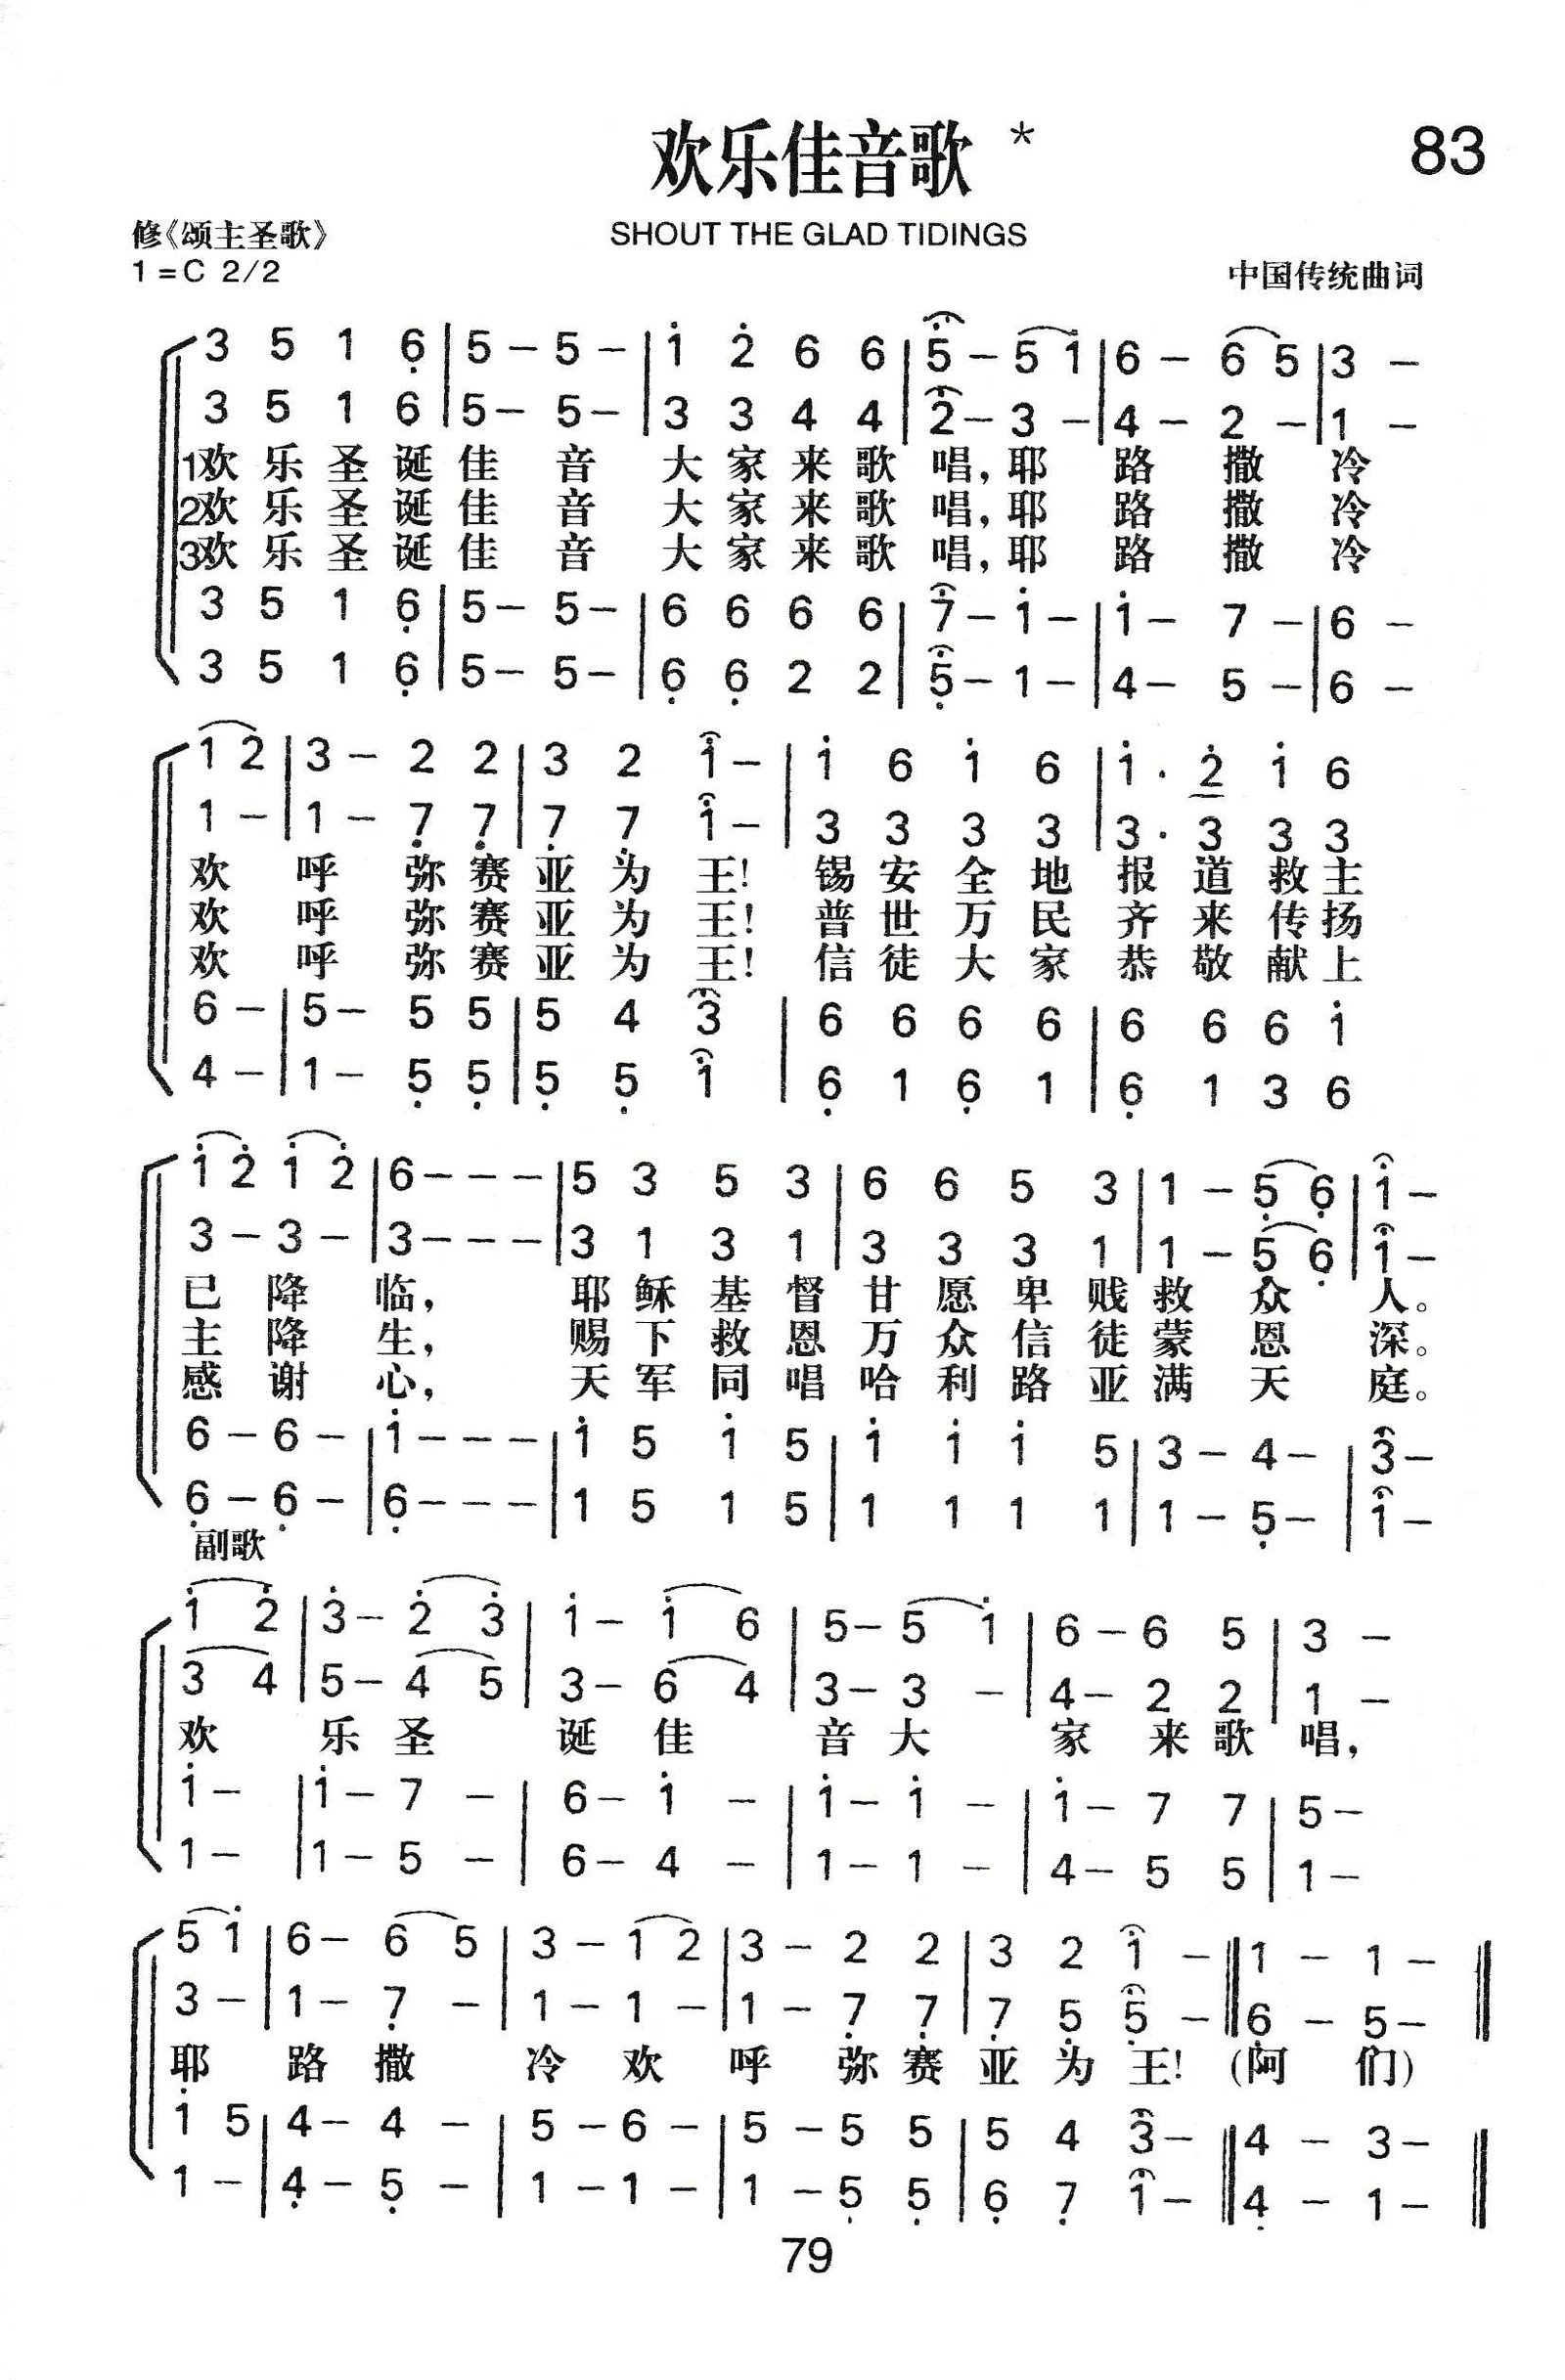 欢乐佳音歌 * 83
修《颂主圣歌》 SHOUT THE GLAD TIDINGS
1=C 2/2 中国传统曲词
3 5 1 6̣ | 5 – 5 – | 1̇ 2̇ 6 6 | 5 – 5 1̇ | 6 – 6 5 | 3 –
3 5 1 6̣ | 5 – 5 – | 3 3 4 4 | 2 – 3 – | 4 – 2 – | 1 –
1欢 乐 圣 诞 佳 音 大 家 来 歌 唱，耶 路 撒 冷
2欢 乐 圣 诞 佳 音 大 家 来 歌 唱，耶 路 撒 冷
3欢 乐 圣 诞 佳 音 大 家 来 歌 唱，耶 路 撒 冷
3 5 1 6̣ | 5 – 5 – | 6 6 6 6 | 7 – 1̇ – | 1̇ – 7 – | 6 –
3 5 1 6̣ | 5 – 5 – | 6̣ 6̣ 2 2 | 5̣ – 1 – | 4 – 5 – | 6 –
1 2 | 3 – 2 2 | 3 2 1 – | 1̇ 6 1̇ 6 | 1̇ · 2̇ 1̇ 6
1 – | 1 – 7̣ 7̣ | 7̣ 7̣ 1 – | 3 3 3 3 | 3 · 3 3 3
欢 呼 弥 赛 亚 为 王！ 锡 安 全 地 报 道 救 主
欢 呼 弥 赛 亚 为 王！ 普 世 万 民 齐 来 传 扬
欢 呼 弥 赛 亚 为 王！ 信 徒 大 家 恭 敬 献 上
6 – | 5 – 5 5 | 5 4 3 | 6 6 6 6 | 6 6 6 1̇
4 – | 1 – 5̣ 5̣ | 5̣ 5̣ 1 | 6̣ 1 6̣ 1 | 6̣ 1 3 6
1̇ 2̇ 1̇ 2̇ | 6 – – – | 5 3 5 3 | 6 6 5 3 | 1 – 5̣ 6̣ | 1 –
3 – 3 – | 3 – – – | 3 1 3 1 | 3 3 3 1 | 1 – 5̣ 6̣ | 1 –
已 降 临， 耶 稣 基 督 甘 愿 卑 贱 救 众 人。
主 降 生， 赐 下 救 恩 万 众 信 徒 蒙 恩 深。
感 谢 心， 天 军 同 唱 哈 利 路 亚 满 天 庭。
6 – 6 – | 1̇ – – – | 1̇ 5 1̇ 5 | 1̇ 1̇ 1̇ 5 | 3 – 4 – | 3 –
6̣ – 6̣ – | 6̣ – – – | 1 5 1 5 | 1 1 1 1 | 1 – 5̣ – | 1 –
副歌
1̇ 2̇ | 3̇ – 2̇ 3̇ | 1̇ – 1̇ 6 | 5 – 5 1̇ | 6 – 6 5 | 3 –
3 4 | 5 – 4 5 | 3 – 6 4 | 3 – 3 – | 4 – 2 2 | 1 –
欢 乐 圣 诞 佳 音 大 家 来 歌 唱，
1̇ – | 1̇ – 7 – | 6 – 1̇ – | 1̇ – 1̇ – | 1̇ – 7 7 | 5 –
1 – | 1 – 5 – | 6 – 4 – | 1 – 1 – | 4 – 5 5 | 1 –
5 1̇ | 6 – 6 5 | 3 – 1 2 | 3 – 2 2 | 3 2 1 – ‖ 1 – 1 – ‖
3 – | 1 – 7̣ – | 1 – 1 – | 1 – 7̣ 7̣ | 7̣ 5̣ 5̣ – ‖ 6̣ – 5 – ‖
耶 路 撒 冷 欢 呼 弥 赛 亚 为 王！ (阿 们)
1̇ 5 | 4 – 4 – | 5 – 6 – | 5 – 5 5 | 5 4 3 – ‖ 4 – 3 – ‖
1 – | 4̣ – 5̣ – | 1 – 1 – | 1 – 5̣ 5̣ | 6̣ 7̣ 1 – ‖ 4̣ – 1 – ‖
79